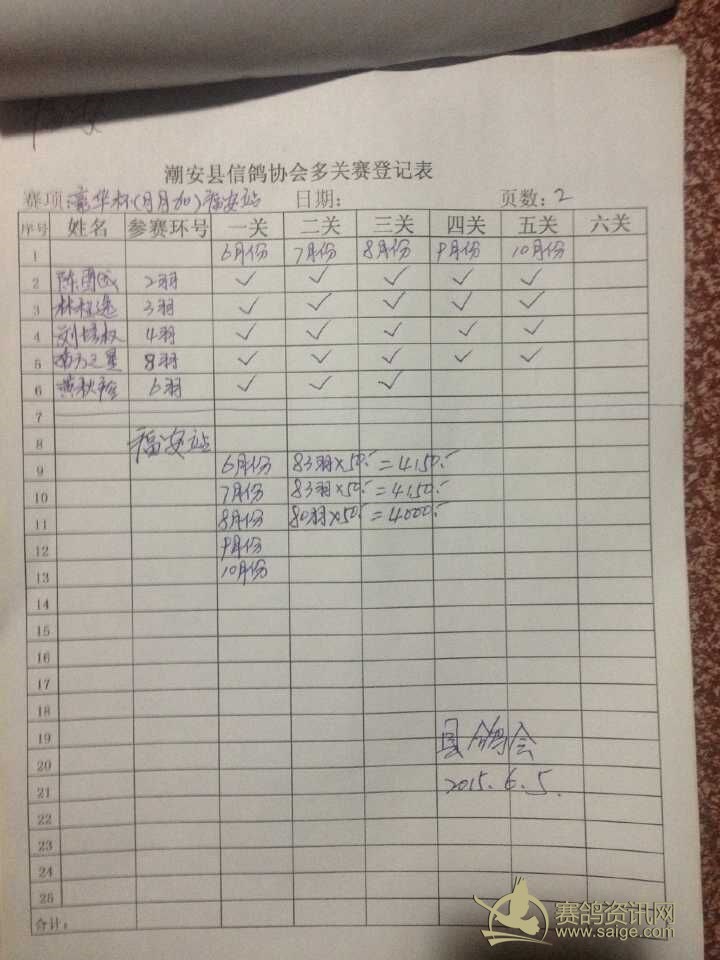 福安
潮安县信鸽协会多关赛登记表
赛项:嘉华杯(月月加)福安站 日期: 页数:2
序号 姓名 参赛环号 一关 二关 三关 四关 五关 六关
1 6月份 7月份 8月份 9月份 10月份
2 2羽 ✓ ✓ ✓ ✓ ✓
3 3羽 ✓ ✓ ✓ ✓ ✓
4 4羽 ✓ ✓ ✓ ✓ ✓
5 南方之星 8羽 ✓ ✓ ✓ ✓ ✓
6 黄秋 6羽 ✓ ✓ ✓
7
8 福安站
9 6月份 83羽×50.- =4150.-
10 7月份 83羽×50.- =4150.-
11 8月份 80羽×50.- =4000.-
12 9月份
13 10月份
14
15
16
17
18
19 县鸽会
20
21 2015.6.5.
22
23
24
25
合计:
赛鸽资讯网
www.saige.com